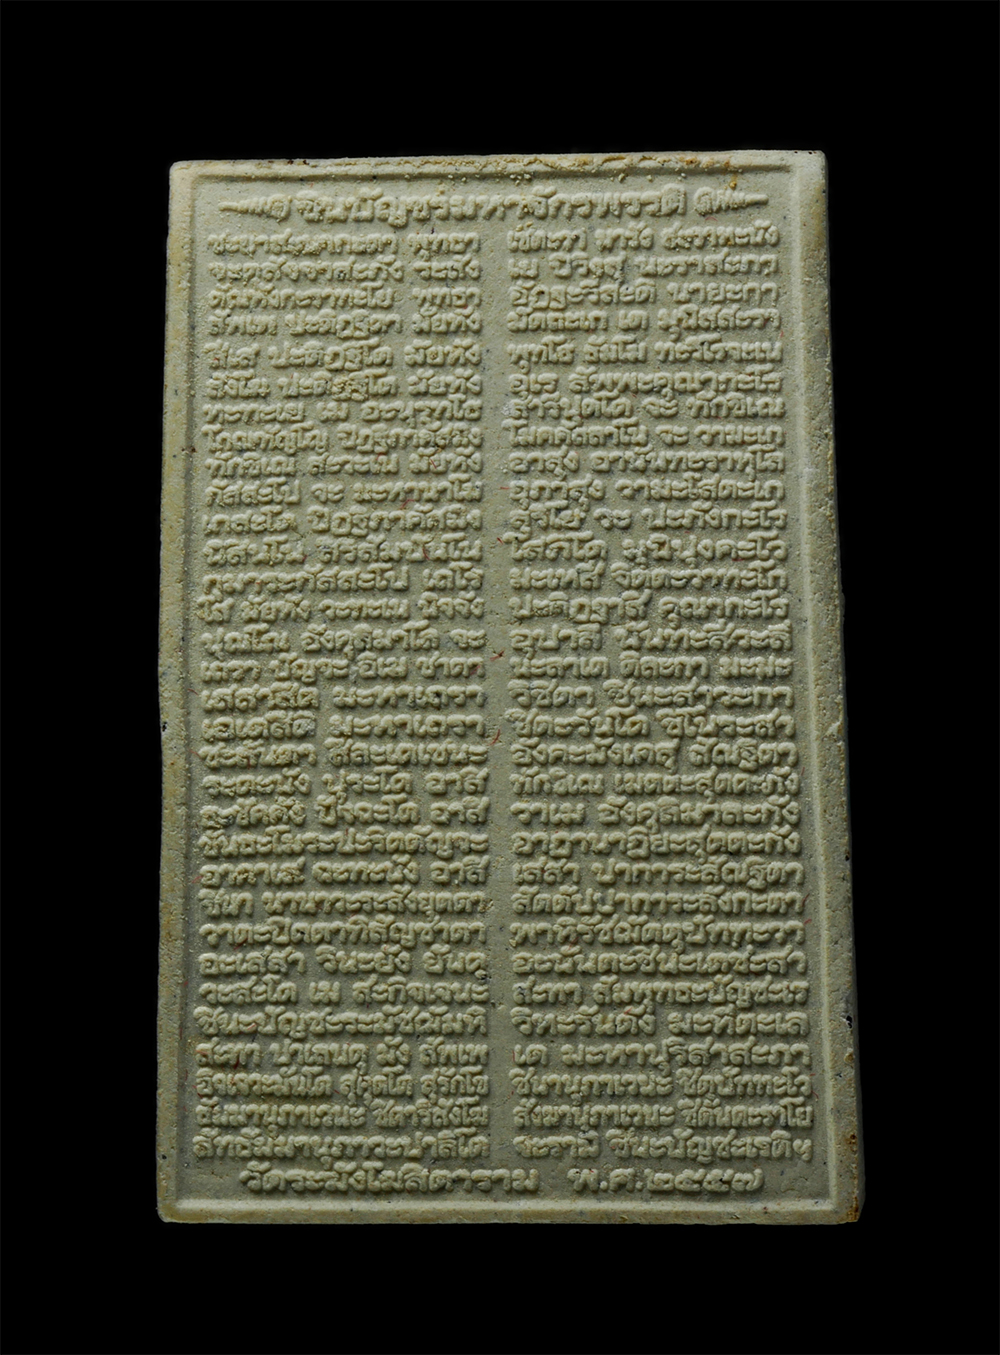 ชินบัญชรมหาจักรพรรดิ
ชะยาสะนากะตา พุทธา เชตะวา มารัง สะวาหะนัง
จะตุสัจจาสะภัง ระสัง เย ปิวิงสุ นะราสะภา
ตัณหังกะราทะโย พุทธา อัฏฐะวีสะติ นายะกา
สัพเพ ปะติฏฐิตา มัยหัง มัตถะเก เต มุนิสสะรา
สีเส ปะติฏฐิโต มัยหัง พุทโธ ธัมโม ทะวิโรจะเน
สังโฆ ปะติฏฐิโต มัยหัง อุเร สัพพะคุณากะโร
หะทะเย เม อะนุรุทโธ สารีปุตโต จะ ทักขิเณ
โกณฑัญโญ ปิฏฐิภาคัสมิง โมคคัลลาโน จะ วามะเก
ทักขิเณ สะวะเน มัยหัง อาสุง อานันทะราหุโล
กัสสะโป จะ มะหานาโม อุภาสุง วามะโสตะเก
เกสะโต ปิฏฐิภาคัสมิง สุริโย วะ ปะภังกะโร
นิสินโน สิริสัมปันโน โสภิโต มุนิปุงคะโว
กุมาระกัสสะโป เถโร มะเหสี จิตตะวาทะโก
โส มัยหัง วะทะเน นิจจัง ปะติฏฐาสิ คุณากะโร
ปุณโณ อังคุลิมาโล จะ อุปาลี นันทะสีวะลี
เถรา ปัญจะ อิเม ชาตา นะลาเต ติละกา มะมะ
เสสาสีติ มะหาเถรา วิชิตา ชินะสาวะกา
เอเตสีติ มะหาเถรา ชิตะวันโต ชิโนระสา
ชะลันตา สีละเตเชนะ อังคะมังเคสุ สัณฐิตา
ระตะนัง ปุระโต อาสิ ทักขิเณ เมตตะสุตตะกัง
ธะชัคคัง ปัจฉะโต อาสิ วาเม อังคุลิมาละกัง
ขันธะโมระปะริตตัญจะ อาฏานาฏิยะสุตตะกัง
อากาเส ฉะทะนัง อาสิ เสสา ปาการะสัณฐิตา
ชินา นานาวะระสังยุตตา สัตตัปปาการะลังกะตา
วาตะปิตตาทิสัญชาตา พาหิรัชฌัตตุปัททะวา
อะเสสา วินะยัง ยันตุ อะนันตะชินะเตชะสา
วะสะโต เม สะกิจเจนะ สะทา สัมพุทธะปัญชะเร
ชินะปัญชะระมัชฌัมหิ วิหะรันตัง มะหีตะเล
สะทา ปาเลนตุ มัง สัพเพ เต มะหาปุริสาสะภา
อิจเจวะมันโต สุคุตโต สุรักโข ชินานุภาเวนะ ชิตุปัททะโว
ธัมมานุภาเวนะ ชิตาริสังโฆ สังฆานุภาเวนะ ชิตันตะราโย
สัทธัมมานุภาวะปาลิโต จะรามิ ชินะปัญชะเรติฯ
วัดระฆังโฆสิตาราม พ.ศ.๒๕๕๗